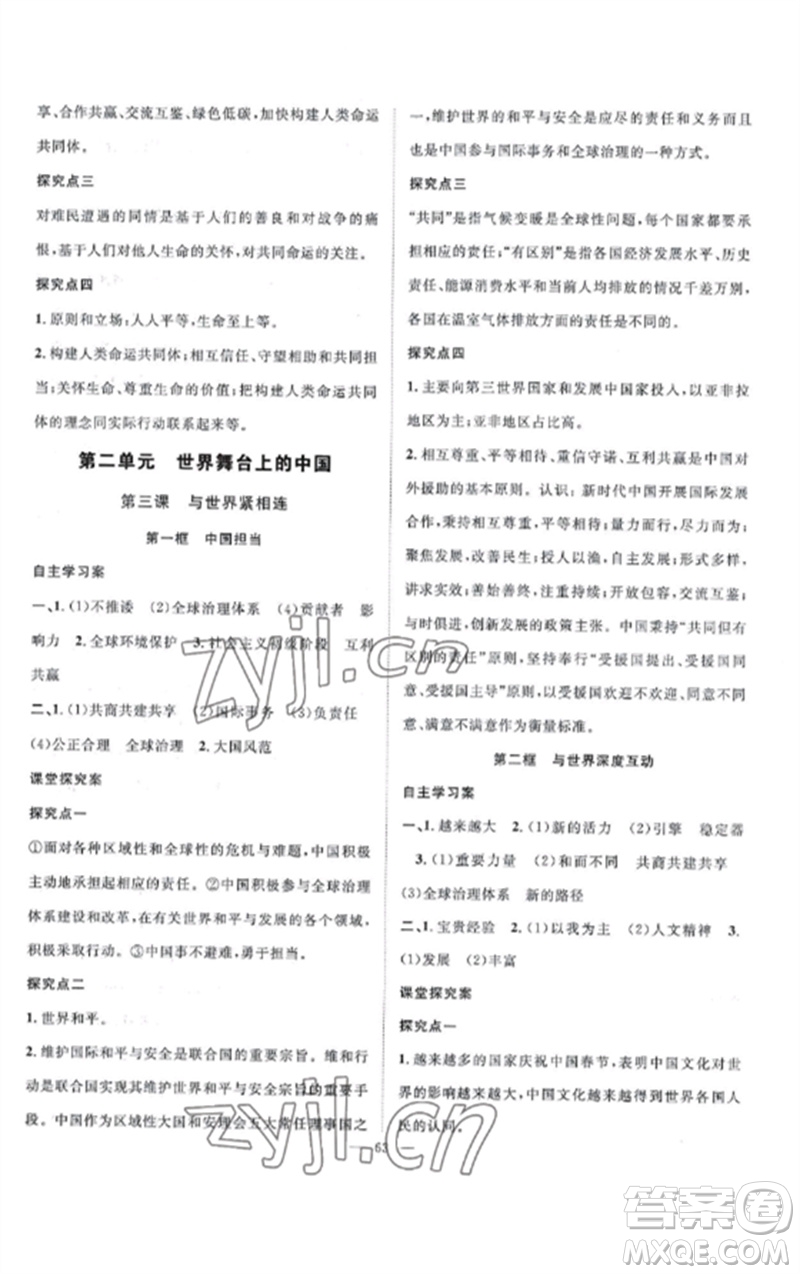 享、合作共赢、交流互鉴、绿色低碳,加快构建人类命运
共同体。
探究点三
对难民遭遇的同情基于人们的善良和对战争的痛
恨,基于人们对他人生命的关怀,对共同命运的关注。
探究点四
1.原则和立场:人人平等,生命至上等。
2.构建人类命运共同体:相互信任、守望相助和共同担
当;关怀生命、尊重生命的价值;把构建人类命运共同
体的理念同实际行动联系起来等。
第二单元 世界舞台上的中国
第三课 与世界紧相连
第一框 中国担当
自主学习案
一、1.(1)不推诿 (2)全球治理体系 (4)贡献者 影
响力 2.全球环境保护 3.社会主义初级阶段 互利
共赢
二、1.(1)共商共建共享 (2)国际事务 (3)负责任
(4)公正合理 全球治理 2.大国风范
课堂探究案
探究点一
①面对各种区域性和全球性的危机与难题,中国积极
主动地承担起相应的责任。②中国积极参与全球治理
体系建设和改革,在有关世界和平与发展的各个领域,
积极采取行动。③中国事不避难,勇于担当。
探究点二
1.世界和平。
2.维护国际和平与安全是联合国的重要宗旨。维和行
动是联合国实现其维护和平与安全宗旨的重要手
段。中国作为区域性大国和安理会五大常任理事国之
一,维护世界的和平与安全是应尽的责任和义务而且
也是中国参与国际事务和全球治理的一种方式。
探究点三
“共同”是指气候变暖是全球性问题,每个国家都有
相应的责任;“有区别”是指各国经济发展水平、历史
责任、能源消费水平和当前人均排放的情况千差万别,
各国在温室气体排放方面的责任是不同的。
探究点四
1.主要向第三世界国家和发展中国家投入,以亚非拉
地区为主;亚非地区占比高。
2.相互尊重、平等相待、重信守诺、互利共赢是中国对
外援助的基本原则。认识:新时代中国开展国际发展
合作,秉持相互尊重,平等相待;量力而行,尽力而为;
聚焦发展,改善民生;授人以渔,自主发展;形式多样,
讲求实效;善始善终,注重持续;开放包容,交流互鉴;
与时俱进,创新发展的政策主张。中国秉持“共同但有
区别的责任”原则,坚持奉行“受援国提出、受援国同
意、受援国主导”原则,受援国欢迎不欢迎、同意不同
意、满意不满意作为衡量标准。
第二框 与世界深度互动
自主学习案
一、1.越来越大 2.(1)新的活力 (2)引擎 稳定器
3.(1)重要力量 (2)和而不同 共商共建共享
(3)全球治理体系 新的路径
二、1.宝贵经验 2.(1)以我为主 (2)人文精神 3.
(1)发展 (2)丰富
课堂探究案
探究点一
1.越来越多的国家庆祝中国春节,表明中国文化对世
界的影响越来越大,中国文化越来越得到世界各国人
民的认同。
63
zyjl.cn
zyjl.cn
答案卷
MXQE.COM